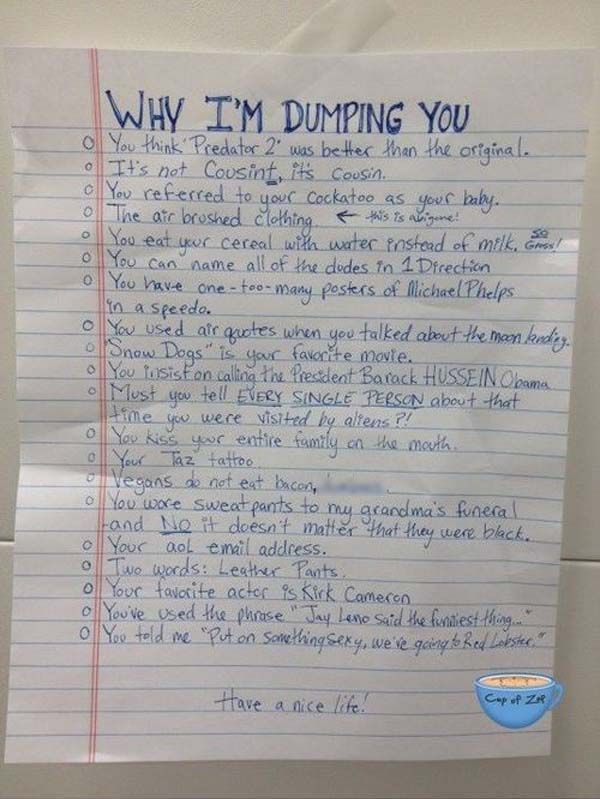 WHY I'M DUMPING YOU
You think "Predator 2" was better than the original.
It's not Cousint, it's cousin.
You referred to your cockatoo as your baby.
The air brushed clothing ← this is a bigone!
You eat your cereal with water instead of milk, SO Gross!
You can name all of the dudes in 1 Direction
You have one-too-many posters of Michael Phelps
in a speedo.
You used air quotes when you talked about the moon landing.
"Snow Dogs" is your favorite movie.
You insist on calling the President Barack HUSSEIN Obama
Must you tell EVERY SINGLE PERSON about that
time you were visited by aliens?!
You kiss your entire family on the mouth.
Your Taz tattoo
Vegans do not eat bacon,
You wore sweatpants to my grandma's funeral
and NO it doesn't matter that they were black.
Your aol email address.
Two words: Leather Pants.
Your favorite actor is Kirk Cameron
You've used the phrase "Jay Leno said the funniest thing..."
You told me "Put on something sexy, we're going to Red Lobster."
Have a nice life!
Cup of Zup